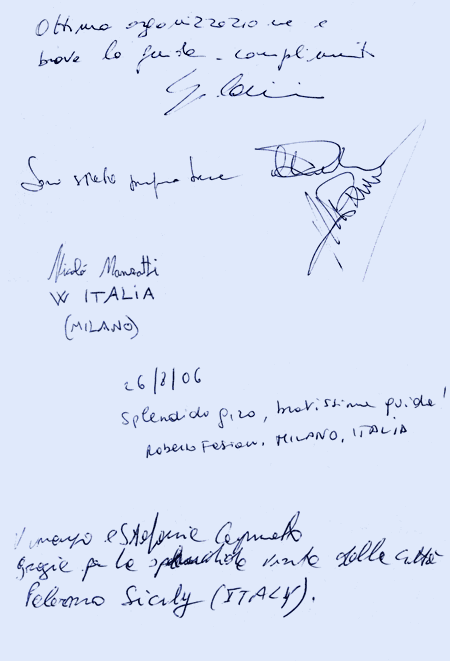 Ottima organizzazione e
brava la guida. complimenti
Sono stato
Nicolò Manzotti
W ITALIA
(MILANO)
26/8/06
Splendido giro, bravissima guida!
Roberto MILANO, ITALIA
e Stefania
grazie per la visita della città
Palermo Sicily (ITALY).